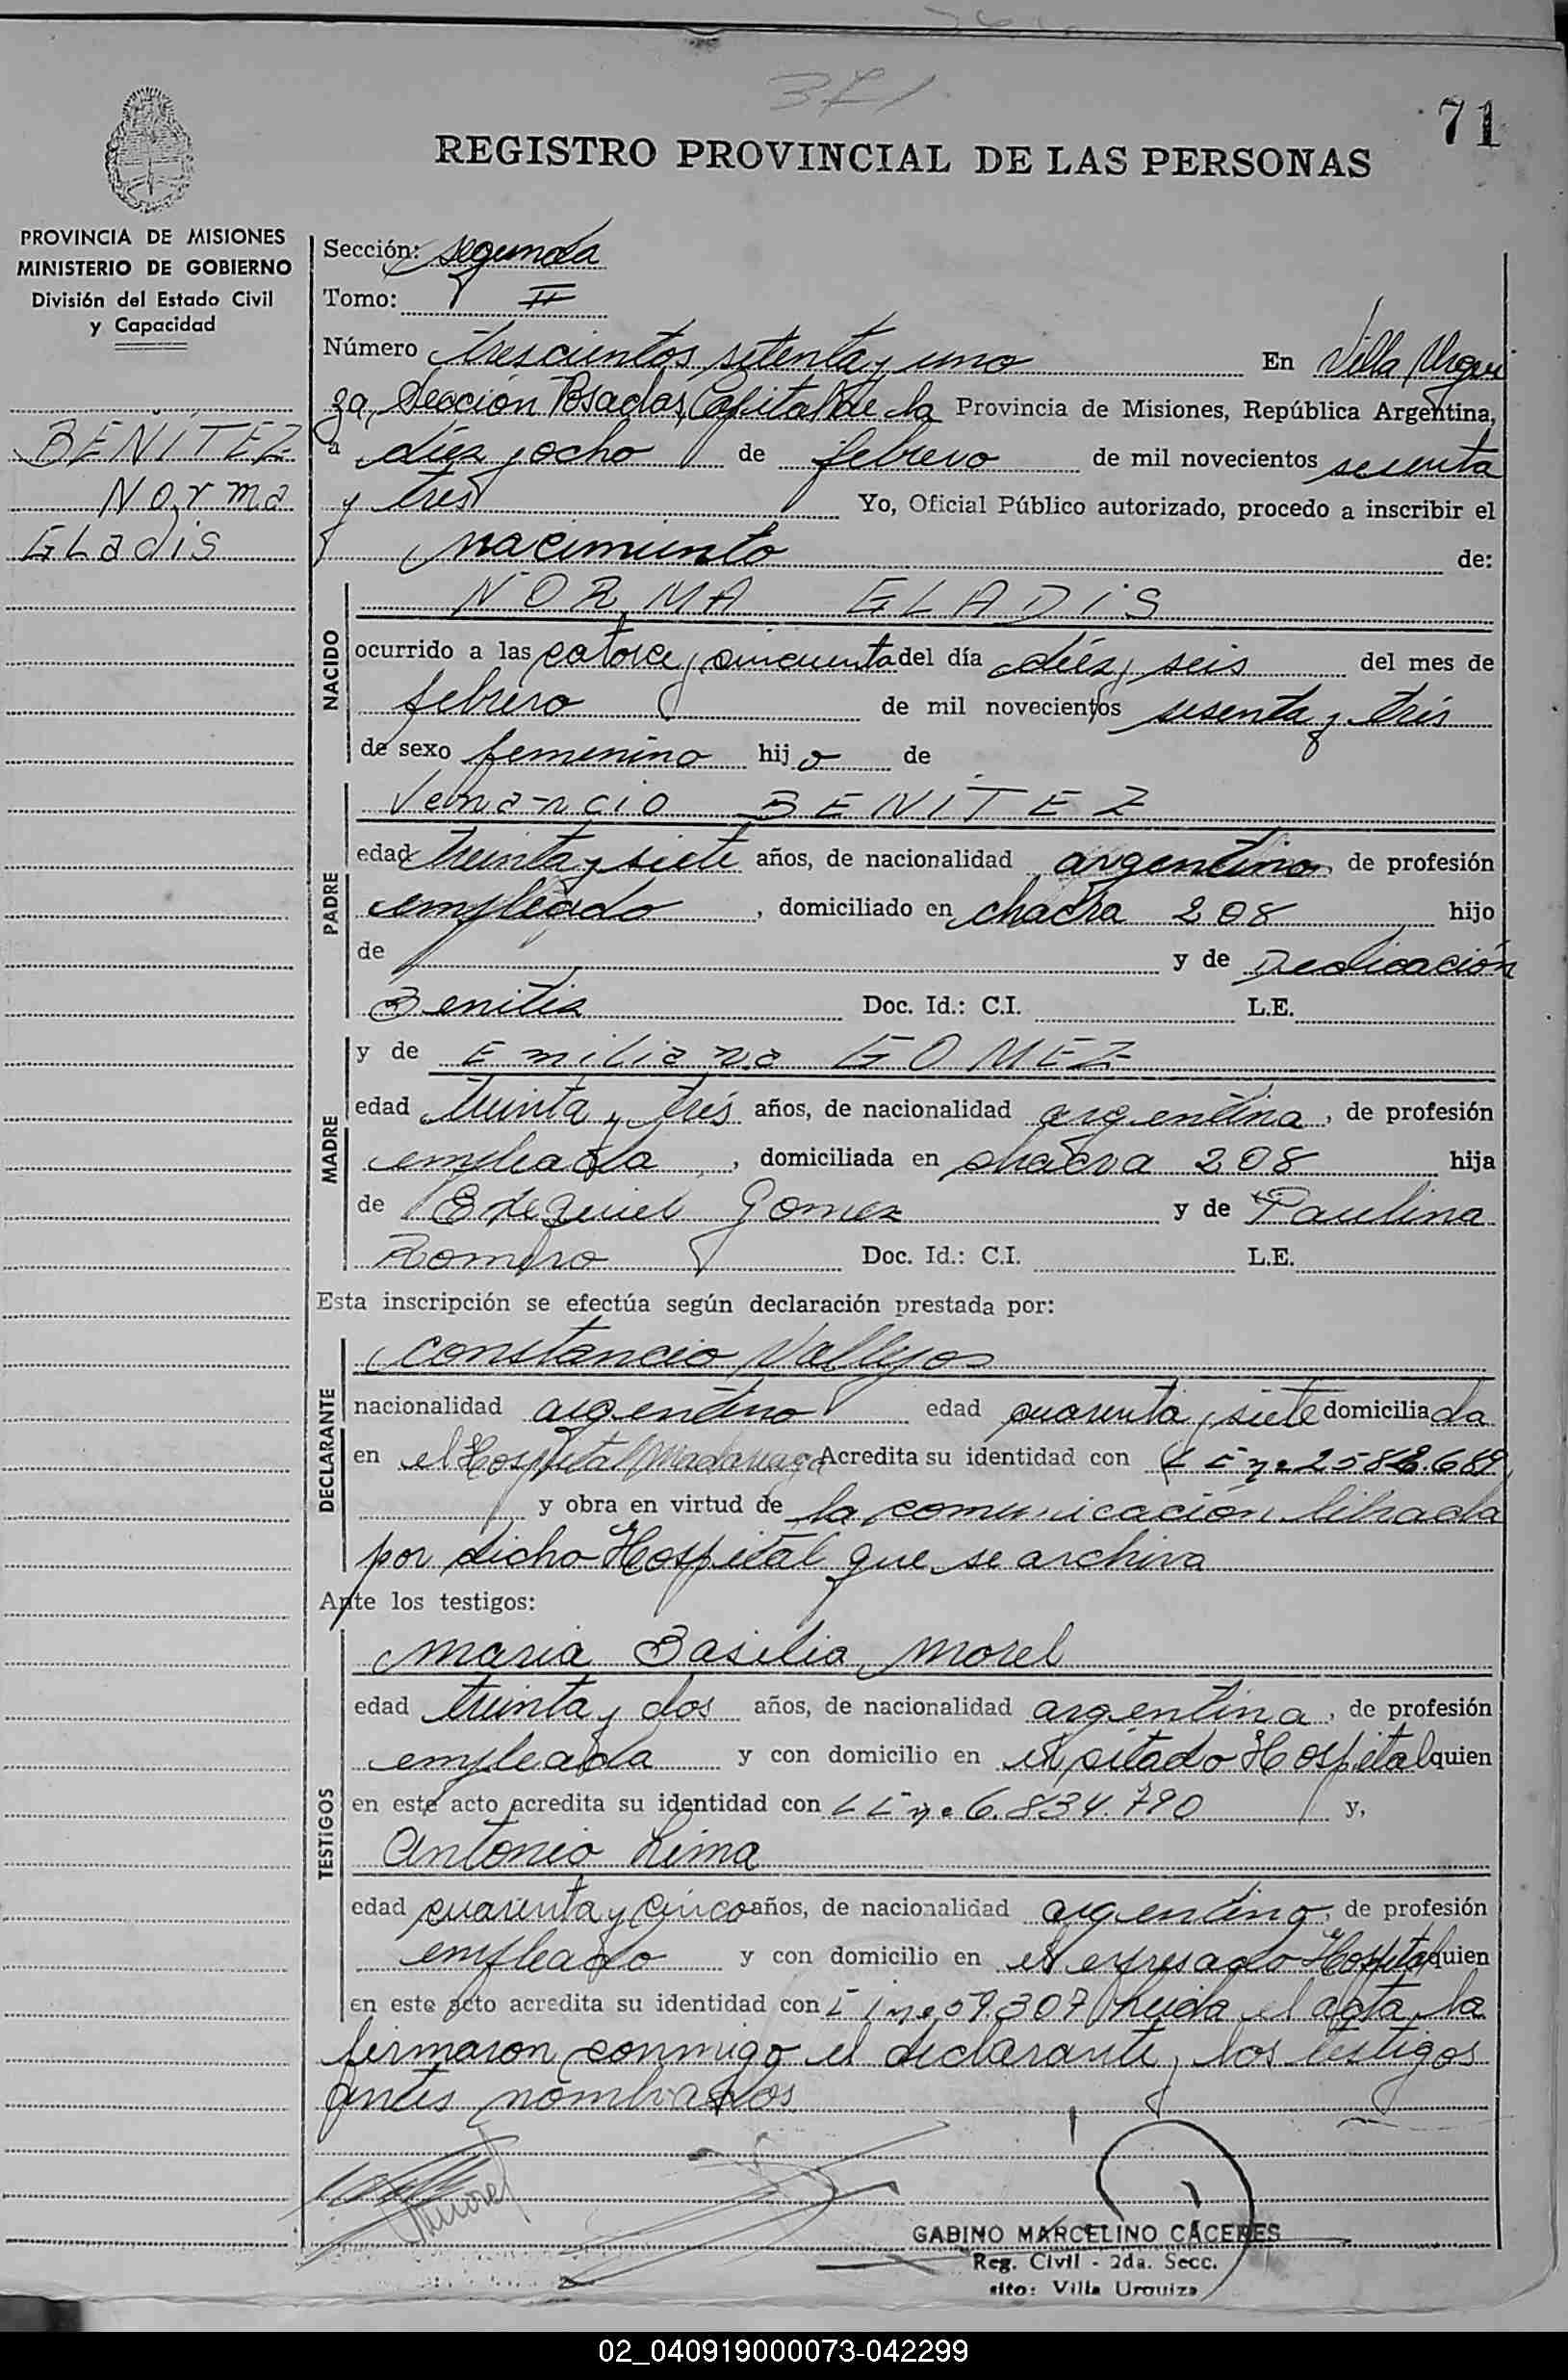 371
71
REGISTRO PROVINCIAL DE LAS PERSONAS
PROVINCIA DE MISIONES
MINISTERIO DE GOBIERNO
División del Estado Civil
y Capacidad
BENÍTEZ
Norma
GLadis
Sección: segunda
Tomo: II
Número trescientos setenta y uno En Villa Urqui
za, Sección Posadas, Capital de la Provincia de Misiones, República Argentina,
a diez y ocho de febrero de mil novecientos sesenta
y tres Yo, Oficial Público autorizado, procedo a inscribir el
nacimiento de:
NACIDO
NORMA GLADIS
ocurrido a las catorce y cincuenta del día diéz y seis del mes de
febrero de mil novecientos sesenta y trés
de sexo femenino hijo de
PADRE
Venancio BENITEZ
edad treinta y siete años, de nacionalidad argentino de profesión
empleado , domiciliado en chacra 208 hijo
de y de Dedicación
Benitez Doc. Id.: C.I. L.E.
MADRE
y de Emiliana GOMEZ
edad treinta y trés años, de nacionalidad argentina, de profesión
empleada , domiciliada en chacra 208 hija
de Ezequiel Gomez y de Paulina
Romero Doc. Id.: C.I. L.E.
Esta inscripción se efectúa según declaración prestada por:
DECLARANTE
Constancio Vallejos
nacionalidad argentino edad cuarenta y siete domiciliada
en el Hospital Madariaga Acredita su identidad con
y obra en virtud de la comunicación librada
por dicho Hospital que se archiva
Ante los testigos:
TESTIGOS
Maria Basilia Morel
edad treinta y dos años, de nacionalidad argentina, de profesión
empleada y con domicilio en el citado Hospital quien
en este acto acredita su identidad con 6.834.790 y,
Antonio Lima
edad cuarenta y cinco años, de nacionalidad argentino, de profesión
empleado y con domicilio en el expresado Hospital quien
en este acto acredita su identidad con 59.307 leida el acta la
firmaron conmigo el declarante y los testigos
antes nombrados
Morel
GABINO MARCELINO CACERES
Reg. Civil - 2da. Secc.
sito: Villa Urquiza
02_040919000073-042299